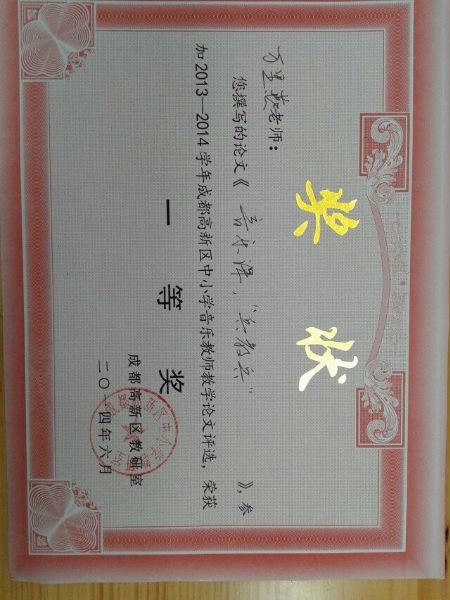 奖状
万里燕老师:
您撰写的论文《音乐课,“兵教兵”》,参
加2013—2014学年成都高新区中小学音乐教师教学论文评选,荣获
一等奖
成都高新区教研室
二〇一四年六月